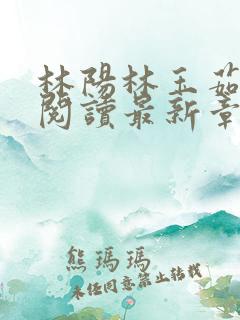 林陽林玉茹
閱讀最新章
熊瑪瑪
未經同意禁止轉載